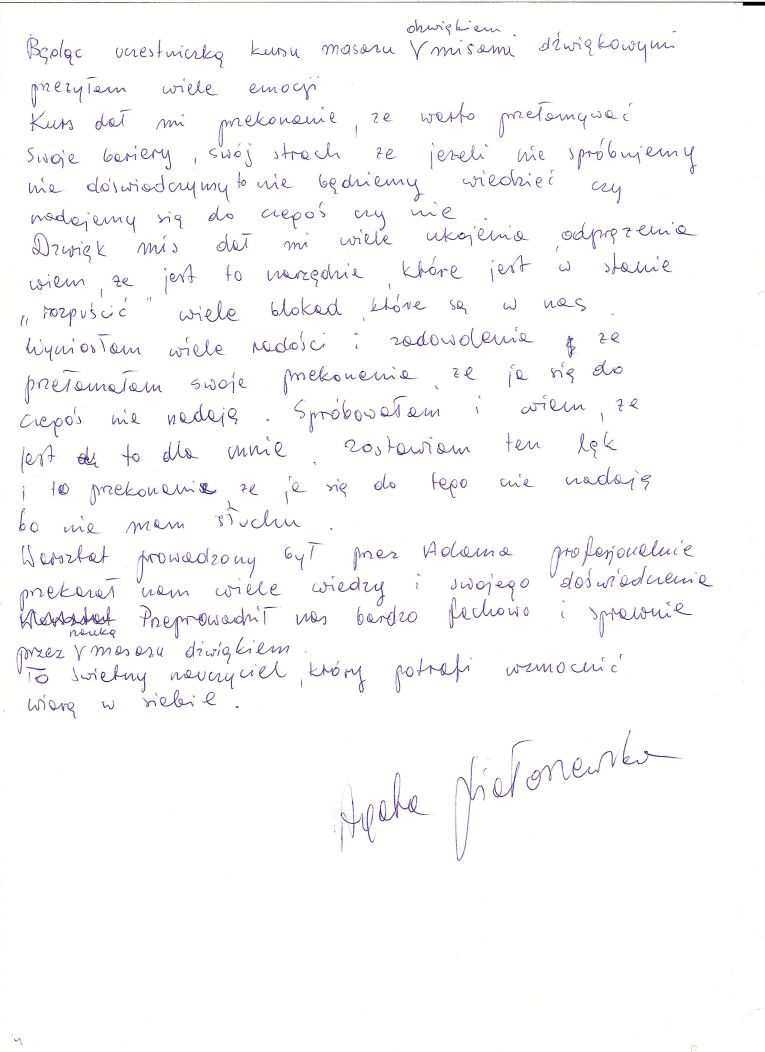 dźwiękiem
Będąc uczestniczką kursu masażu V misami dźwiękowymi
przeżyłam wiele emocji
Kurs dał mi przekonanie, że warto przełamywać
swoje bariery, swój strach że jeżeli nie spróbujemy
nie doświadczymy to nie będziemy wiedzieć czy
nadajemy się do czegoś czy nie.
Dzwięk mis dał mi wiele ukojenia, odprężenia
wiem, że jest to narzędzie, które jest w stanie
„rozpuścić" wiele blokad, które są w nas.
Wyniosłam wiele radości i zadowolenia że
przełamałam swoje przekonania, że ja się do
czegoś nie nadaję. Spróbowałam i wiem, że
jest to dla mnie, zostawiam ten lęk
i to przekonanie, że ja się do tego nie nadaję
bo nie mam słuchu.
Warsztat prowadzony był przez Adama profesjonalnie
przekazał nam wiele wiedzy i swojego doświadczenia
Warsztat Przeprowadził nas bardzo fachowo i sprawnie
nauką
przez V masażu dźwiękiem.
To świetny nauczyciel, który potrafi wzmocnić
wiarę w siebie.
Agata